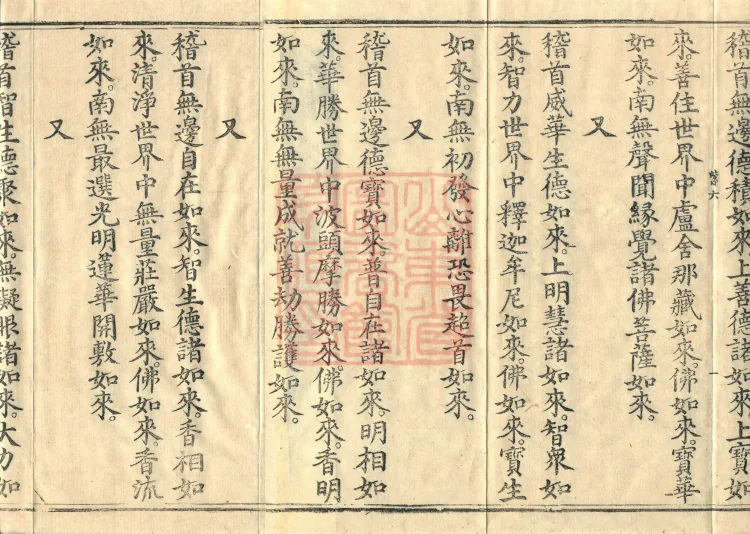 稽首無邊德積如來。上善德諸如來。上寶如
六 一
來。善住世界中盧舍那藏如來。佛如來。寶華
如來。南無聲聞緣覺諸佛菩薩如來。
又
稽首威華生德如來。上明慧諸如來。智衆如
來。智力世界中釋迦牟尼如來。佛如來。寶生
如來。南無初發心離恐畏超首如來。
又
稽首無邊德寶如來。普自在諸如來。明相如
來。華勝世界中波頭摩勝如來。佛如來。香明
如來。南無無量成就善劫勝護如來。
又
稽首無邊自在如來。智生德諸如來。香相如
來。清淨世界中無量莊嚴如來。佛如來。香流
如來。南無最選光明蓮華開敷如來。
又
稽首智生德聚如來。無礙眼諸如來。大力如